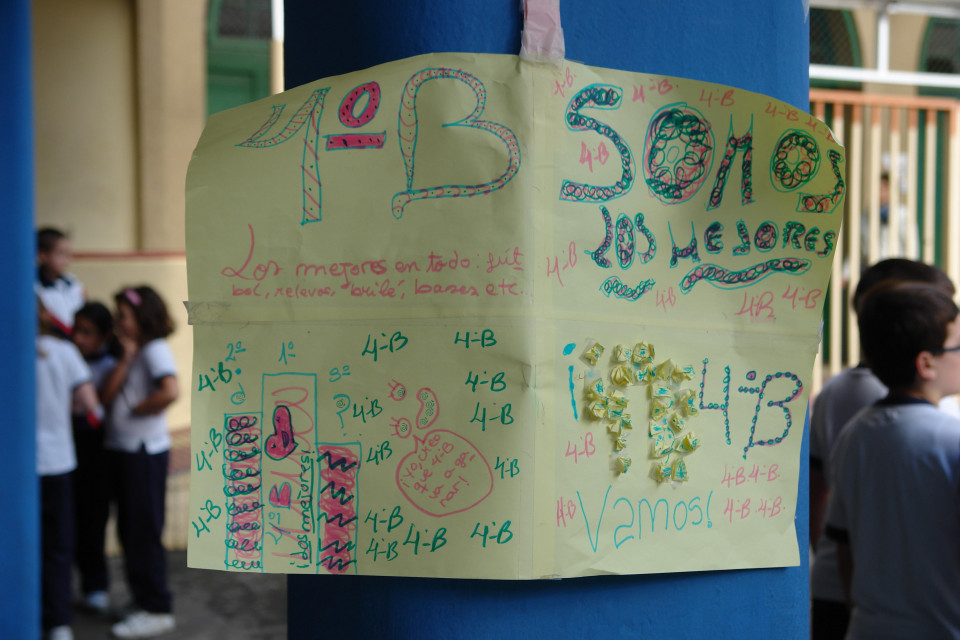 4º B
Los mejores en todo: fút
bol, relevos, "brilé", bases etc.
4-B
4-B
4-B
4-B 4-B
SOMOS
4-B
LOS MEJORES
4-B
4-B
4-B 4-B
2º 1º 3º
4-B 4-B
4-B
4-B
4-B
4-B
?
4ºB
¡Los mejores!
4-B
4-B
4-B
4-B
4-B
4-B
4-B
4-B
4-B
¡
4-B
4-B
4-B
Vamos!
4-B 4-B
4-B 4-B